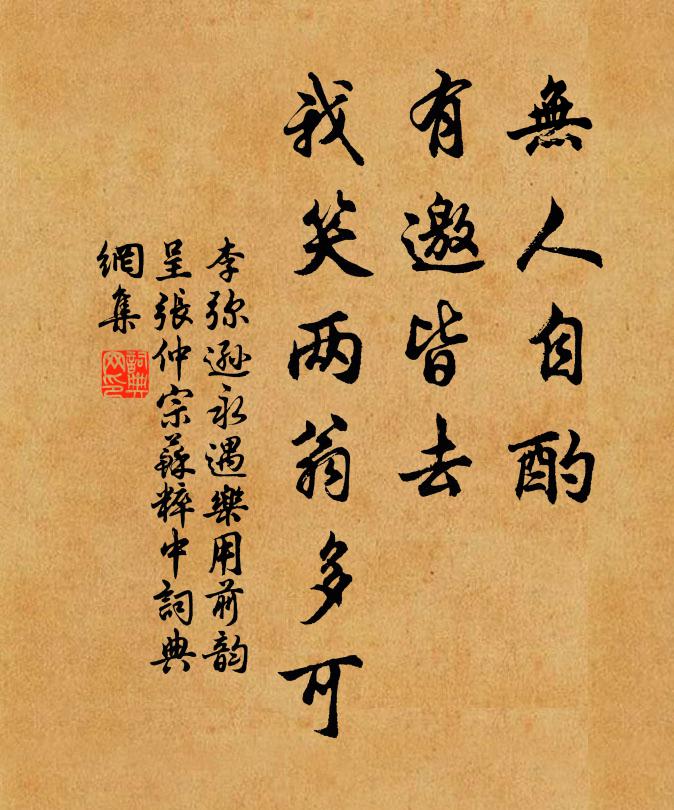 無人自酌
有邀皆去
我笑两翁多可
李弥遜永遇樂用前韵
呈張仲宗蘇粹中詞典
網集
詞典
网印